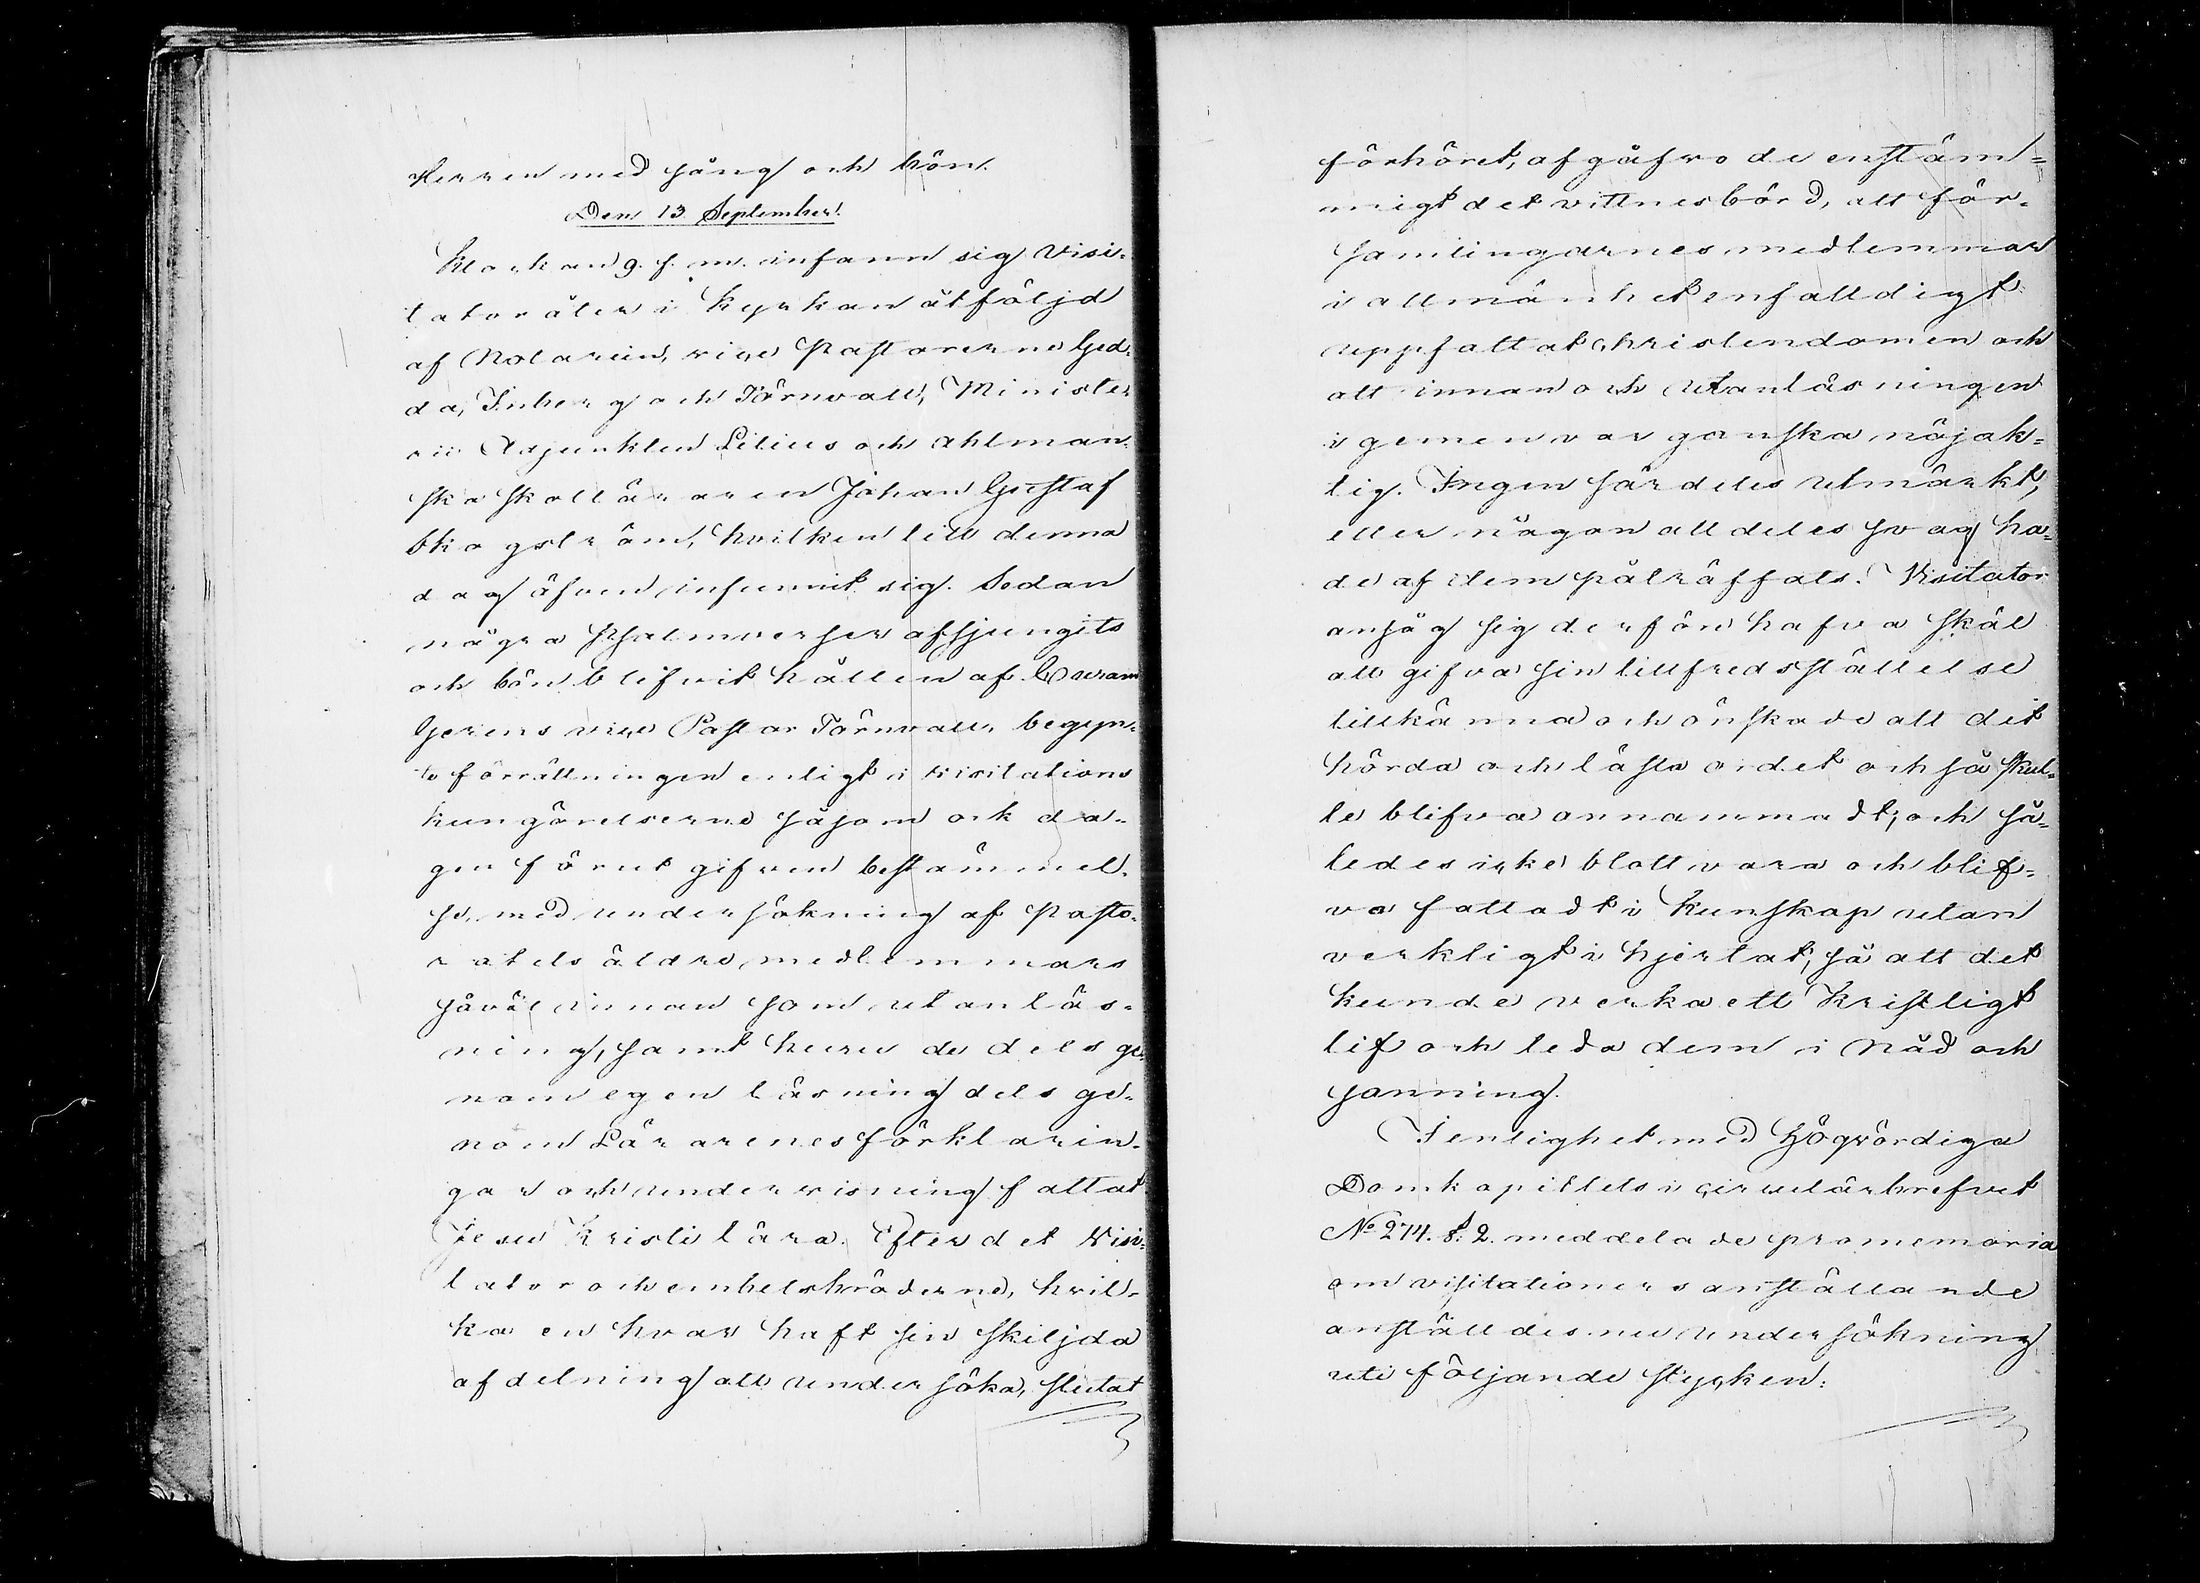 Herren med sång och bön.
Den 13 September.
Klockan 9. f. m. infann sig Visi-
tator åter i kyrkan åtföljd
af Notarien, vice Pastorerne Ged-
da, Inberg och Törnvall, Ministe-
rii Adjunkten Lilius och Ahlman-
ska skolläraren Johan Gustaf
Skogström, hvilken till denna
dag äfven infunnit sig. Sedan
några psalmverser afsjungits
och bön blifvit hållen af Curam
Gerens vice Pastor Törnvall, begyn-
te förrättningen enligt i visitations
kungörelserne såsom ock da-
gen förut gifven bestämmel-
se, med undersökning af pasto-
ratets äldre medlemmars
såväl innan som utanläs-
ning, samt huru de dels ge-
nom egen läsning dels ge-
nom Lärarenes förklarin-
gar och undervisning fattat
Jesu Kristi lära. Efter det Visi-
tator och embetsbröderne, hvil-
ka en hvar haft sin skiljda
afdelning att undersöka, slutat
förhöret, afgåfvo de enstäm-
migt det vittnesbörd, att för-
samlingarnes medlemmar
i allmänhet enfalldigt
uppfattat christendomen och
att innan och utanläsningen
i gemen var ganska nöjak-
tig. Ingen särdeles utmärkt,
eller någon alldeles svag ha-
de af dem påträffats. Visitator
ansåg sig derföre hafva skäl
att gifva sin tillfredsställelse
tillkänna och önskade att det
hörda och lästa ordet ock så skul-
le blifva annammadt; och så-
ledes icke blott vara och blif-
va fattadt i kunskap utan
verkligt i hjertat, så att det
kunde verka ett kristligt
lif och leda dem i nåd och
sanning.
I enlighet med Högvördiga
Domkapitlets i circulärbrefvet
No 274. §. 2. meddelade promemoria
om visitationers anställande
anställdes nu undersökning
uti följande stycken: